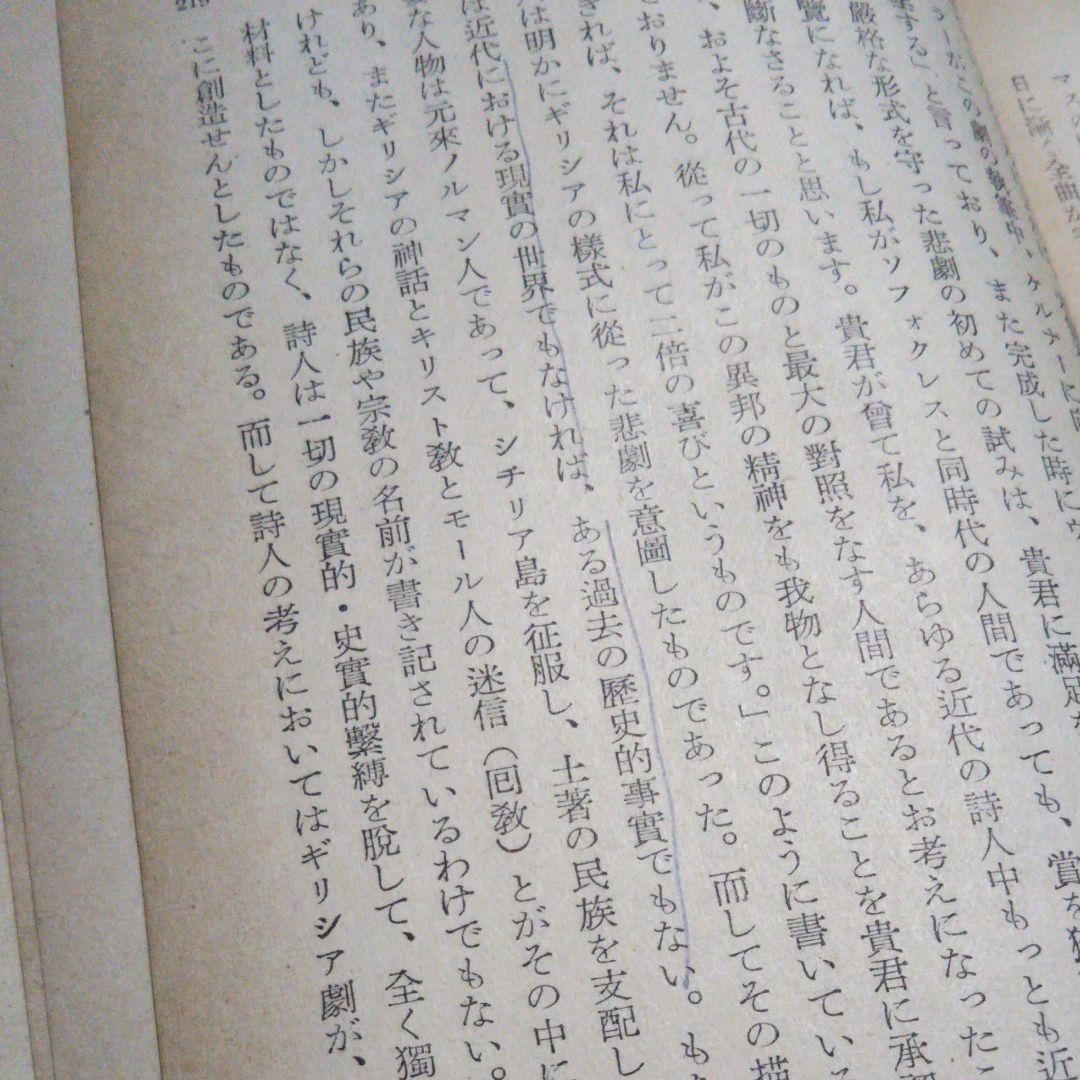 日に漸く全曲が
ーがこの劇の執筆中、ケルナーに
する」と言っており、また完成した時に
嚴格な形式を守った悲劇の初めての試みは、貴君に滿足
覽になれば、もし私がソフォクレスと同時代の人間であっても、賞を
斷なさることと思います。貴君が曾て私を、あらゆる近代の詩人中もっとも近
、およそ古代の一切のものと最大の對照をなす人間であるとお考えになったこ
ておりません。從って私がこの異邦の精神をも我物となし得ることを貴君に承認
きれば、それは私にとって二倍の喜びというものです。」このように書いている
は明かにギリシアの樣式に從った悲劇を意圖したものであった。而してその描
は近代における現實の世界でもなければ、ある過去の歷史的事實でもない。も
な人物は元來ノルマン人であって、シチリア島を征服し、土著の民族を支配し
あり、またギリシアの神話とキリスト敎とモール人の迷信（囘敎）とがその中に
けれども、しかしそれらの民族や宗敎の名前が書き記されているわけでもない。
材料としたものではなく、詩人は一切の現實的・史實的繫縛を脫して、全く獨
こに創造せんとしたものである。而して詩人の考えにおいてはギリシア劇が、